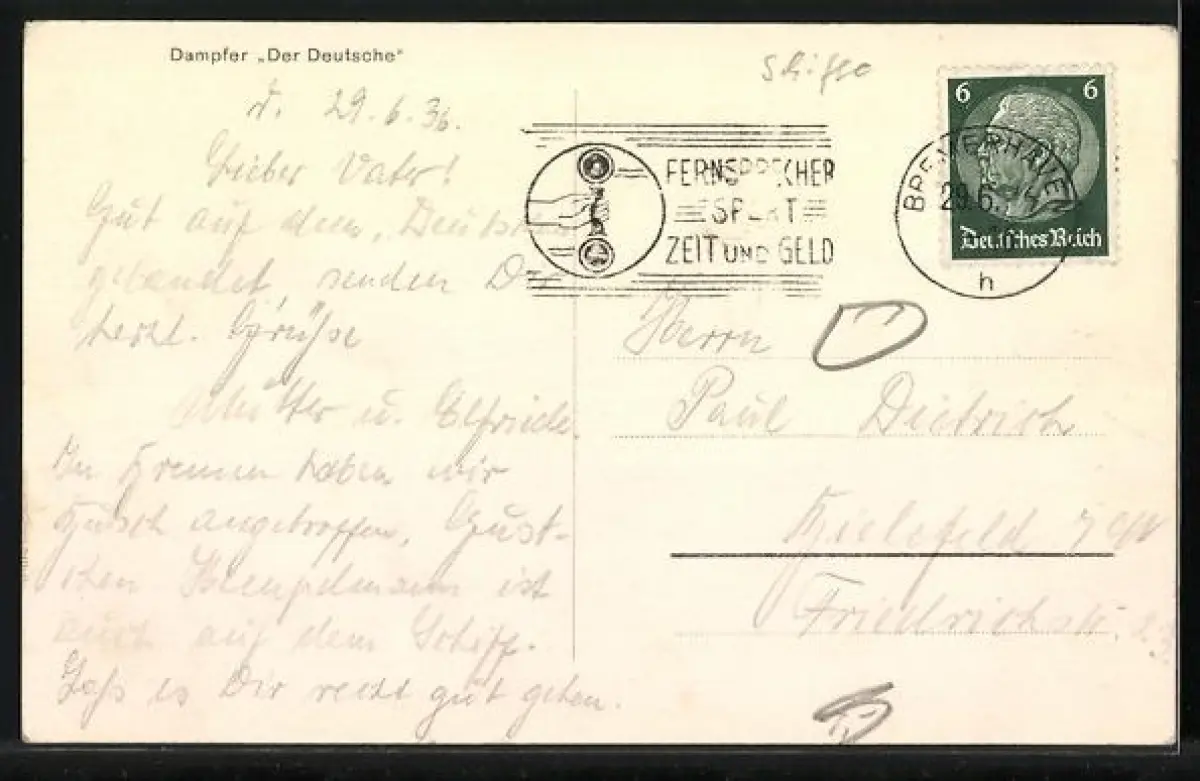 Dampfer „Der Deutsche"
Schiffe
d. 29.6.36.
Lieber Vater!
Gut auf dem „Deutschen
gelandet senden Dir
herzl. Grüße
Mutter u. Elfriede.
In Bremen haben wir
angetroffen, Gust-
chen ist
auch auf dem Schiff.
Laß es Dir recht gut gehen.
FERNSPRECHER
SPART
ZEIT UND GELD
BREMERHAVEN
29.6.
h
6 6
Deutsches Reich
Herrn
Paul Dietrich
Bielefeld i/W
Friedrichstr. 23